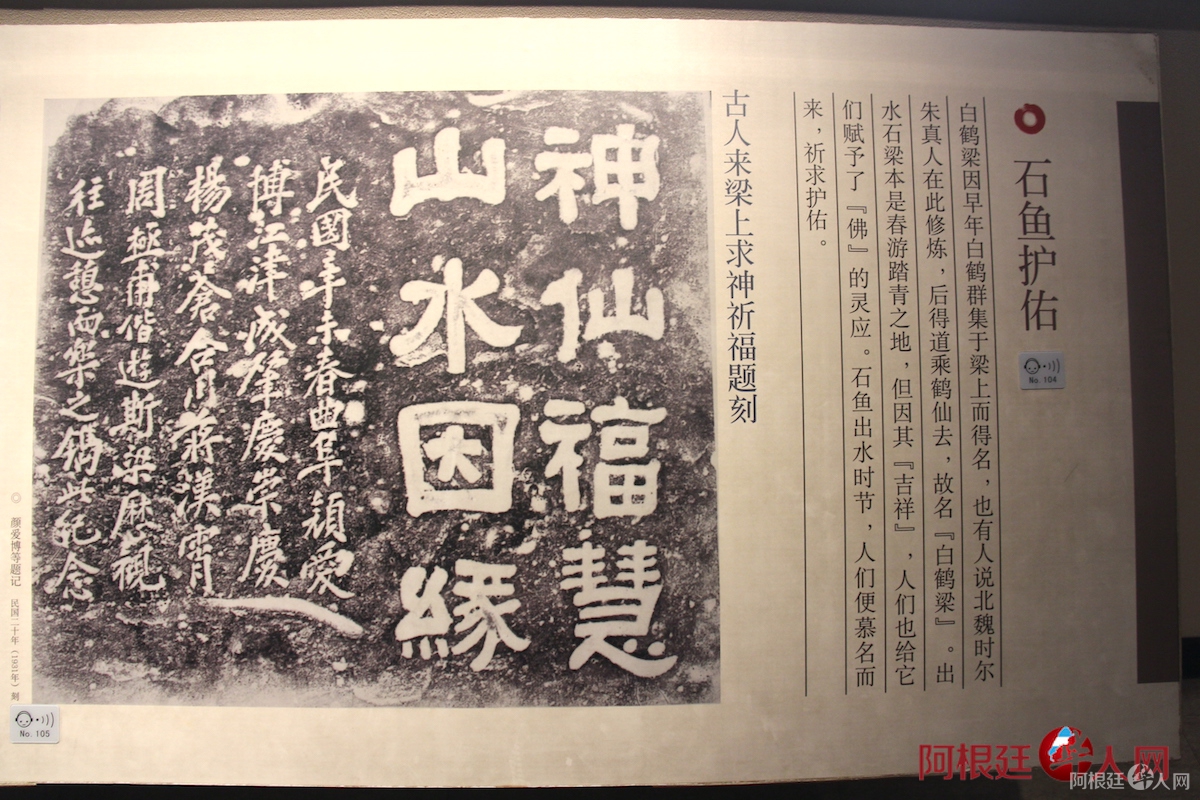 石鱼护佑
No. 104
白鹤梁因早年白鹤群集于梁上而得名，也有人说北魏时尔
朱真人在此修炼，后得道乘鹤仙去，故名『白鹤梁』。出
水石梁本是春游踏青之地，但因其『吉祥』，人们也给它
们赋予了『佛』的灵应。石鱼出水时节，人们便慕名而
来，祈求护佑。
古人来梁上求神祈福题刻
神仙福慧
山水因缘
民國辛未春曲阜顔愛
博江津成肇慶崇慶
楊茂蒼合川蔣漢霄
周極甫偕遊斯梁歷覩
往迹憩而樂之鐫此紀念
颜爱博等题记 民国二十年（1931年）刻
No. 105
阿根廷华人网
阿根廷华人网